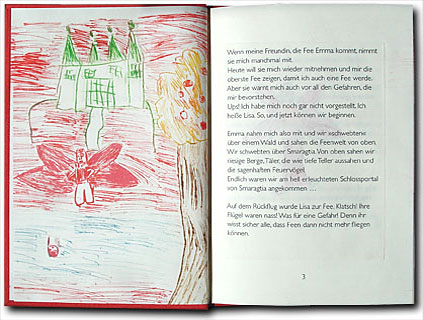 Wenn meine Freundin, die Fee Emma kommt, nimmt
sie mich manchmal mit.
Heute will sie mich wieder mitnehmen und mir die
oberste Fee zeigen, damit ich auch eine Fee werde.
Aber sie warnt mich auch vor all den Gefahren, die
mir bevorstehen.
Ups! Ich habe mich noch gar nicht vorgestellt. Ich
heiße Lisa. So, und jetzt können wir beginnen.
Emma nahm mich also mit und wir »schwebten«
über einem Wald und sahen die Feenwelt von oben.
Wir schwebten über Smaragtia. Von oben sahen wir
riesige Berge, Täler, die wie tiefe Teller aussahen und
die sagenhaften Feuervögel.
Endlich waren wir am hell erleuchteten Schlossportal
von Smaragtia angekommen ...
Auf dem Rückflug wurde Lisa zur Fee. Klatsch! Ihre
Flügel waren nass! Was für eine Gefahr! Denn ihr
wisst sicher alle, dass Feen dann nicht mehr fliegen
können.
3